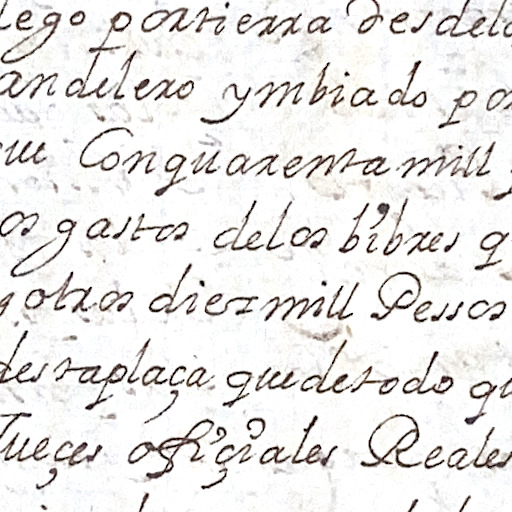 lego por tierra desdela
andelero ymbiado por
que Conquarenta mill
os gastos delos bibres q
y otros diez mill Pessos
destaplaça que detodo qu
Jueçes ofiçiales Reales